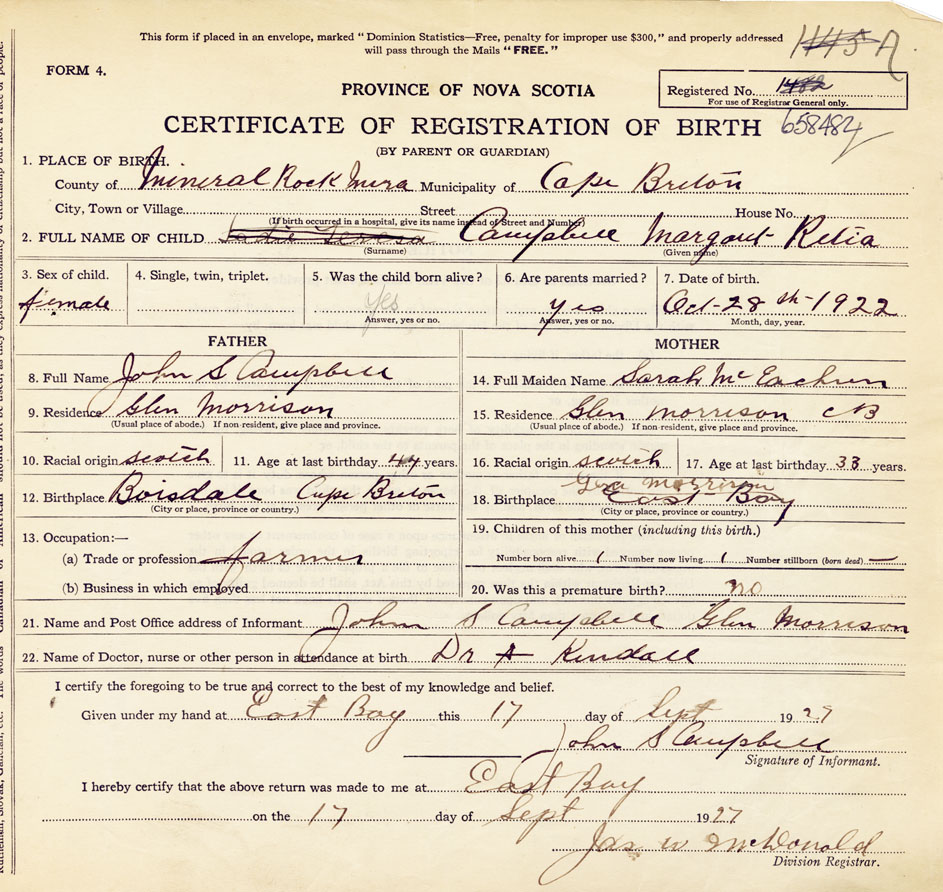 This form if placed in an envelope, marked "Dominion Statistics—Free, penalty for improper use $300," and properly addressed
will pass through the Mails "FREE."
1145 A
FORM 4.
PROVINCE OF NOVA SCOTIA
Registered No. 1482
For use of Registrar General only.
CERTIFICATE OF REGISTRATION OF BIRTH 658484
(BY PARENT OR GUARDIAN)
1. PLACE OF BIRTH.
County of Mineral Rock Mira Municipality of Cape Breton
City, Town or Village Street House No.
(If birth occurred in a hospital, give its name instead of Street and Number)
2. FULL NAME OF CHILD Sadie Teresa Campbell Margaret Retia
(Surname) (Given name)
3. Sex of child. 4. Single, twin, triplet. 5. Was the child born alive? 6. Are parents married? 7. Date of birth.
female Yes yes Oct-28th-1922
Answer, yes or no. Answer, yes or no. Month, day, year.
FATHER MOTHER
8. Full Name John S Campbell 14. Full Maiden Name Sarah McEachern
9. Residence Glen Morrison 15. Residence Glen Morrison CB
(Usual place of abode.) If non-resident, give place and province. (Usual place of abode.) If non-resident, give place and province.
10. Racial origin scotch 11. Age at last birthday 44 years. 16. Racial origin scotch 17. Age at last birthday 33 years.
Glen Morrison
12. Birthplace Boisdale Cape Breton 18. Birthplace East Bay
(City or place, province or country.) (City or place, province or country.)
13. Occupation:— 19. Children of this mother (including this birth.)
(a) Trade or profession farmer Number born alive 1 Number now living 1 Number stillborn (born dead) —
(b) Business in which employed 20. Was this a premature birth? no
21. Name and Post Office address of Informant John S Campbell Glen Morrison
22. Name of Doctor, nurse or other person in attendance at birth Dr A Kendall
I certify the foregoing to be true and correct to the best of my knowledge and belief.
Given under my hand at East Bay this 17 day of Sept 1927
John S Campbell
Signature of Informant.
I hereby certify that the above return was made to me at East Bay
on the 17 day of Sept 1927
Jas W McDonald
Division Registrar.